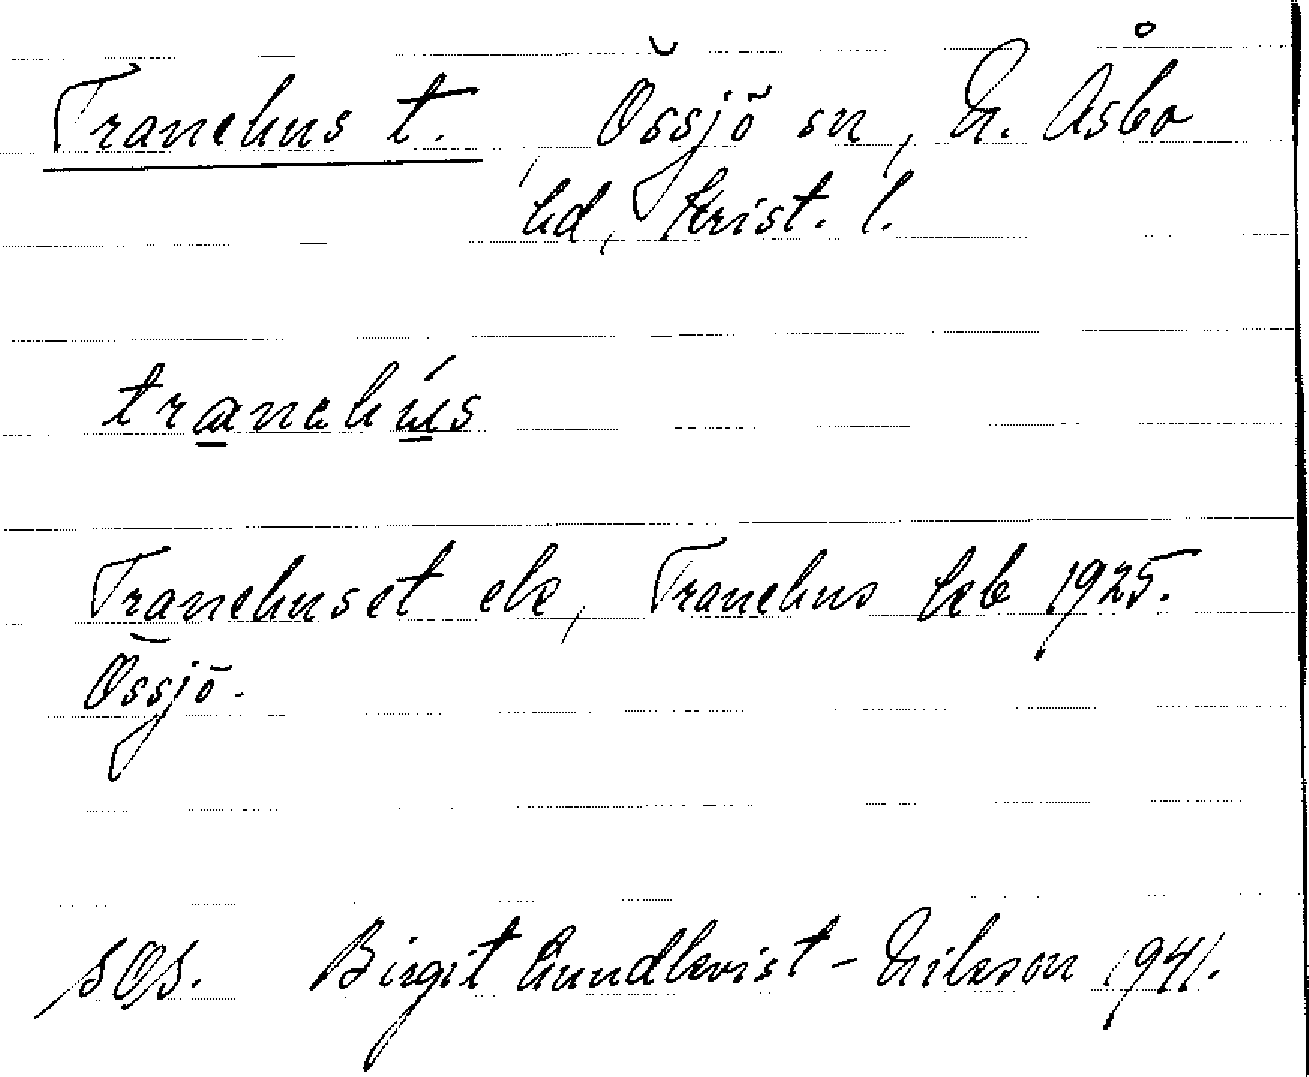 Tranehus t., Össjö sn, N. Åsbo
hd, Krist. l.
tranehús
Tranehuset ek, Tranehus heb 1925.
Össjö.
SOS. Birgit Lundkvist - Nilsson 1941.